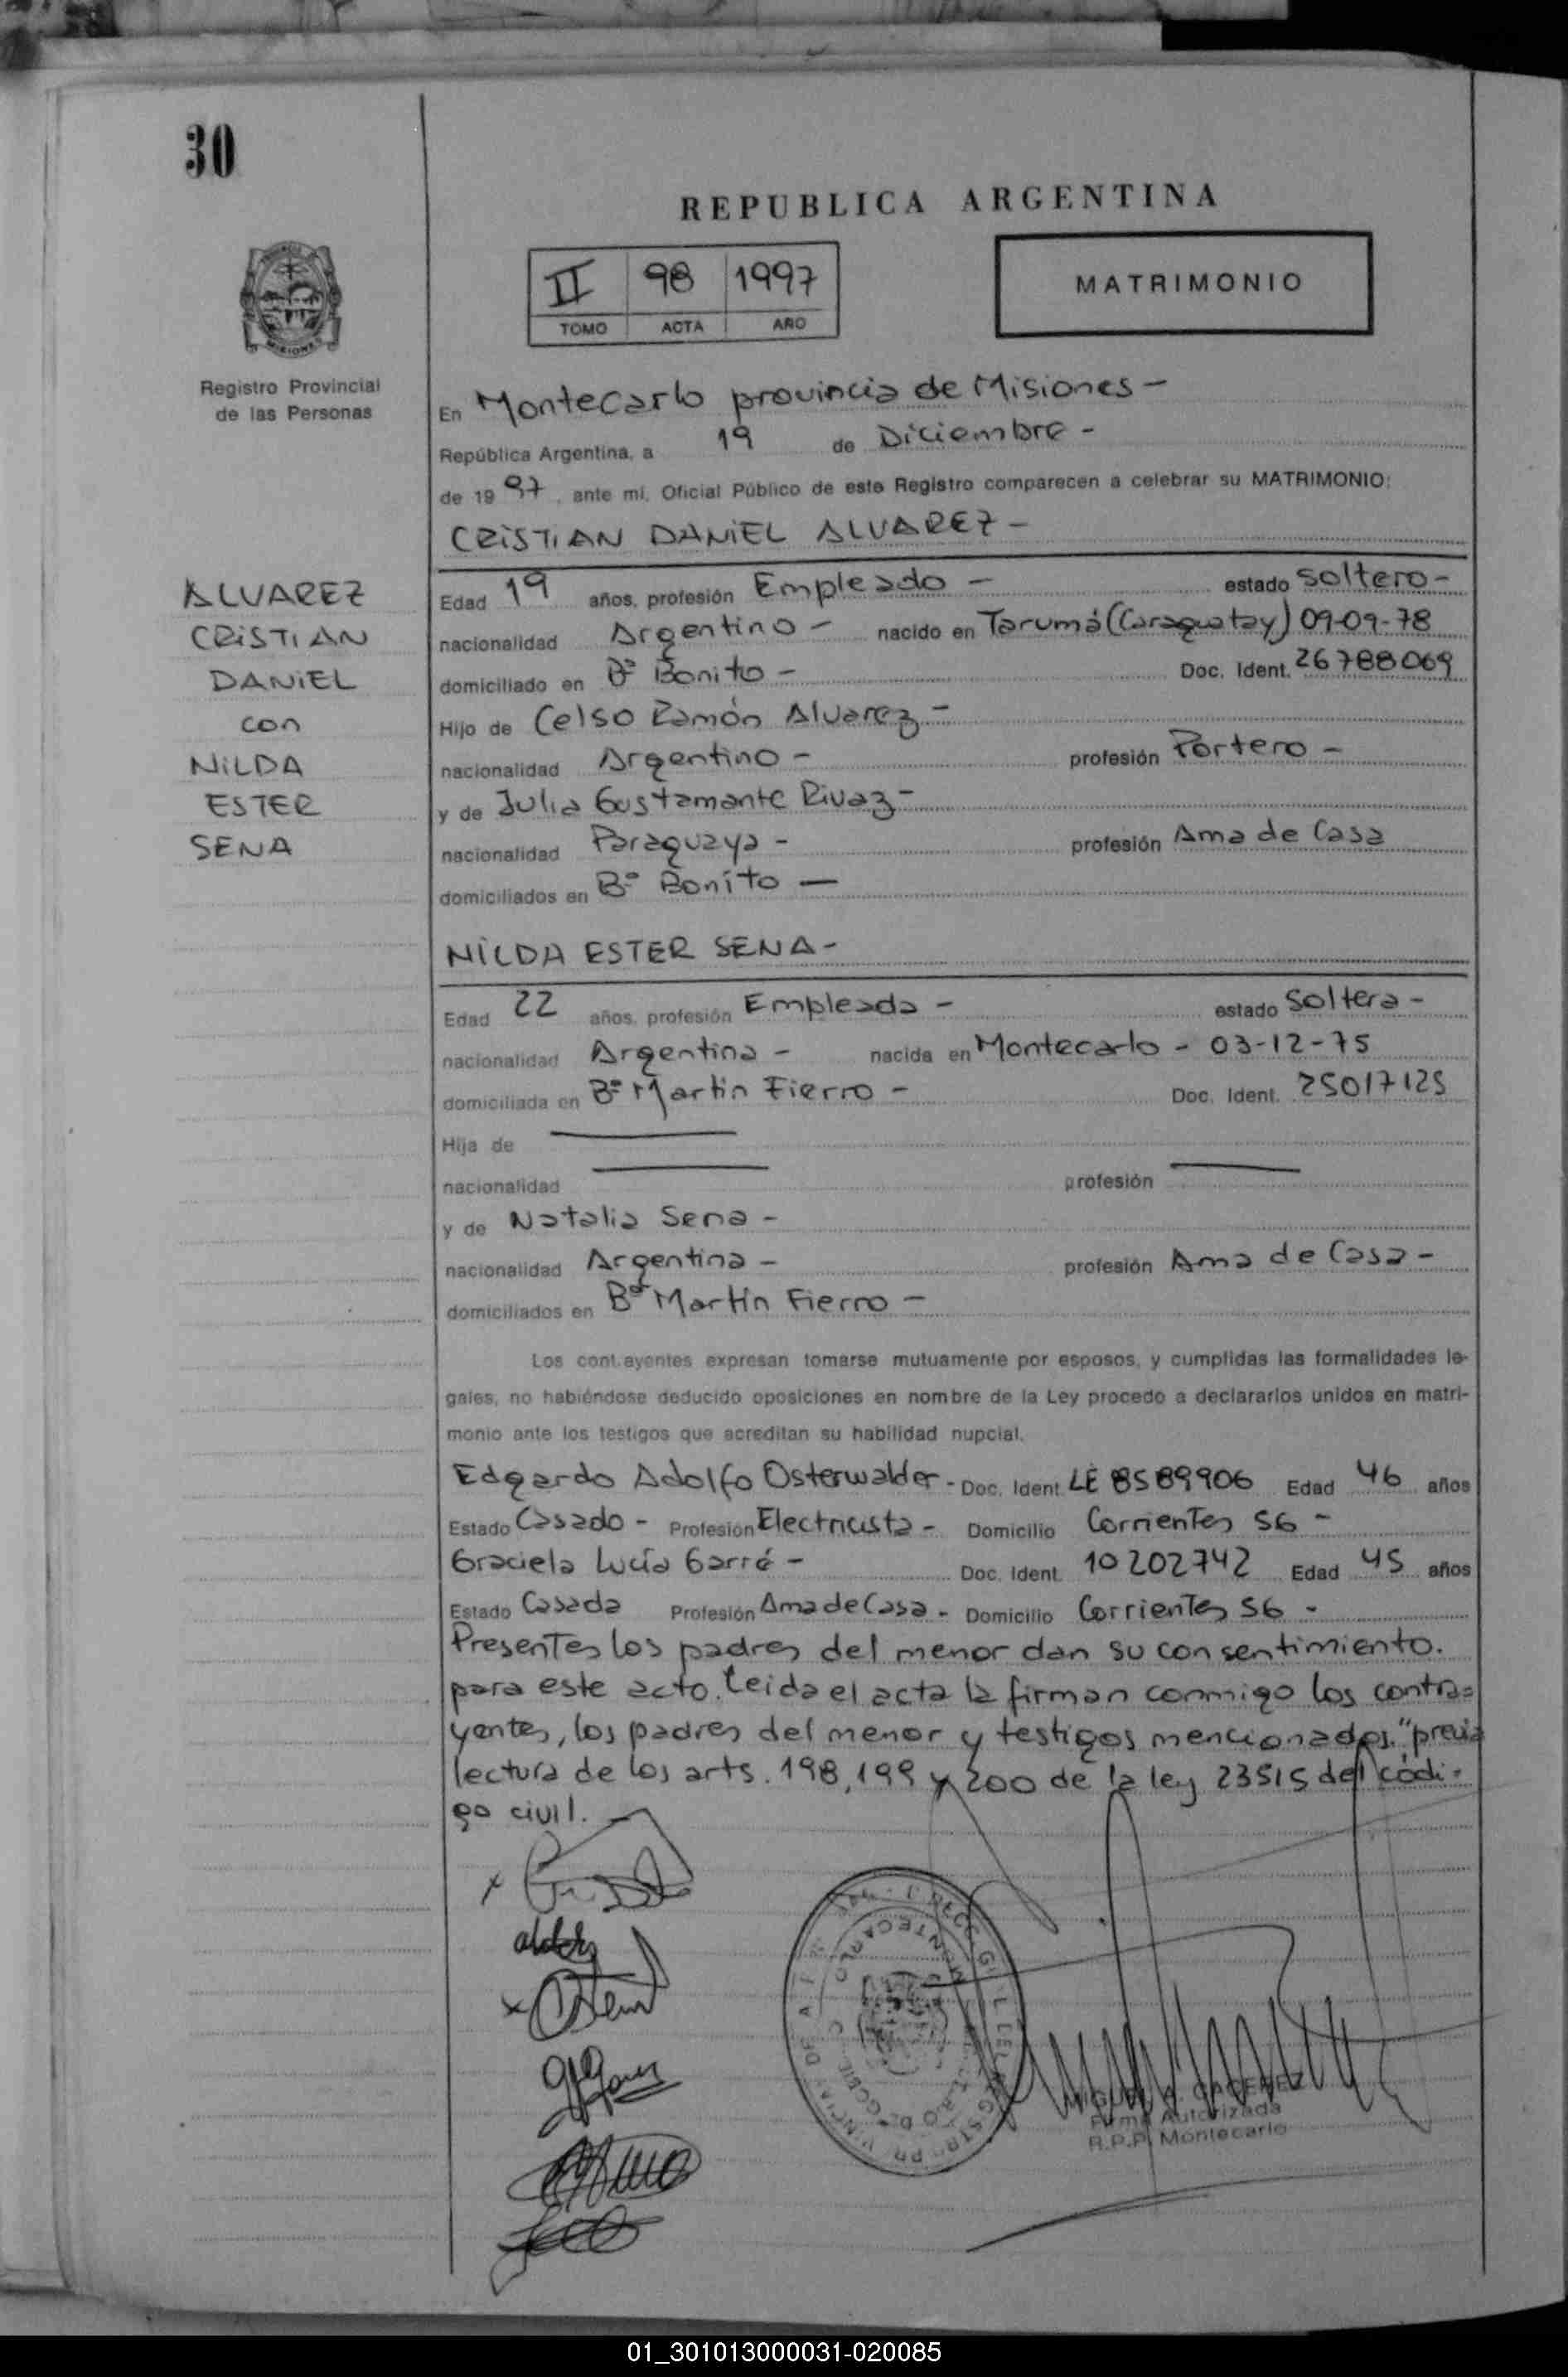 30
REPUBLICA ARGENTINA
II 98 1997
TOMO ACTA AÑO
MATRIMONIO
MISIONES
Registro Provincial
de las Personas
En Montecarlo provincia de Misiones -
República Argentina, a 19 de Diciembre -
de 19 97, ante mí, Oficial Público de este Registro comparecen a celebrar su MATRIMONIO:
CRISTIAN DANIEL ALVAREZ -
ALVAREZ
CRISTIAN
DANIEL
con
NILDA
ESTER
SENA
Edad 19 años, profesión Empleado - estado soltero -
nacionalidad Argentino - nacido en Tarumá (Caraguatay) 09-09-78
domiciliado en Bº Bonito - Doc. Ident. 26788069
Hijo de Celso Ramón Alvarez -
nacionalidad Argentino - profesión Portero -
y de Julia Gustamante Rivaz -
nacionalidad Paraguaya - profesión Ama de Casa
domiciliados en Bº Bonito -
NILDA ESTER SENA -
Edad 22 años, profesión Empleada - estado soltera -
nacionalidad Argentina - nacida en Montecarlo - 03-12-75
domiciliada en Bº Martin Fierro - Doc. Ident. 25017125
Hija de
nacionalidad profesión
y de Natalia Sena -
nacionalidad Argentina - profesión Ama de Casa -
domiciliados en Bº Martín Fierro -
Los contrayentes expresan tomarse mutuamente por esposos, y cumplidas las formalidades le-
gales, no habiéndose deducido oposiciones en nombre de la Ley procedo a declararlos unidos en matri-
monio ante los testigos que acreditan su habilidad nupcial.
Edgardo Adolfo Osterwalder - Doc. Ident. LE 8589906 Edad 46 años
Estado Casado - Profesión Electricista - Domicilio Corrientes 56 -
Graciela Lucía Garré - Doc. Ident. 10202742 Edad 45 años
Estado Casada Profesión Ama de Casa - Domicilio Corrientes 56 -
Presentes los padres del menor dan su consentimiento.
para este acto. Leida el acta la firman conmigo los contra=
yentes, los padres del menor y testigos mencionados. "previa
lectura de los arts. 198, 199 y 200 de la ley 23515 del códi=
go civil. -
Firma Autorizada
R.P.P. Montecarlo
01_301013000031-020085